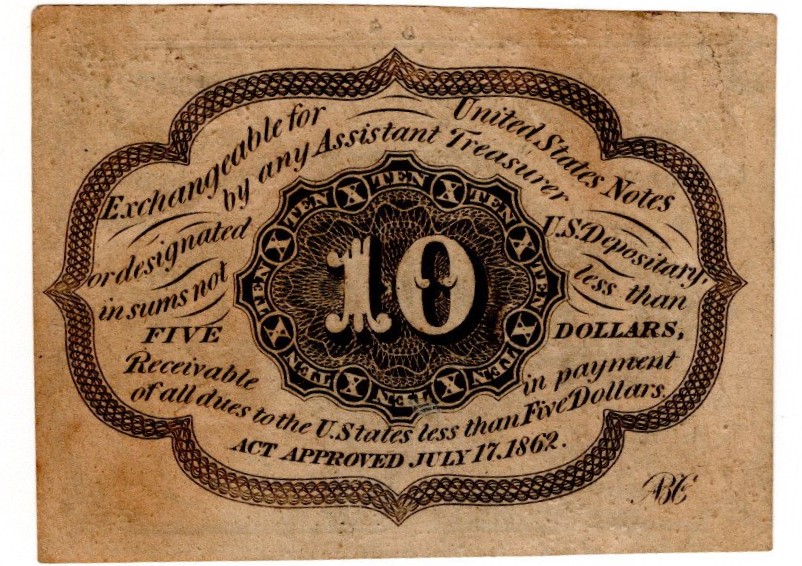 Exchangeable for United States Notes
by any Assistant Treasurer
or designated U.S. Depositary,
in sums not less than
FIVE DOLLARS,
Receivable in payment
of all dues to the U.States less than Five Dollars.
ACT APPROVED JULY 17. 1862.
X TEN X TEN X TEN X TEN X TEN X TEN X TEN X TEN X TEN X TEN
10
ABCº